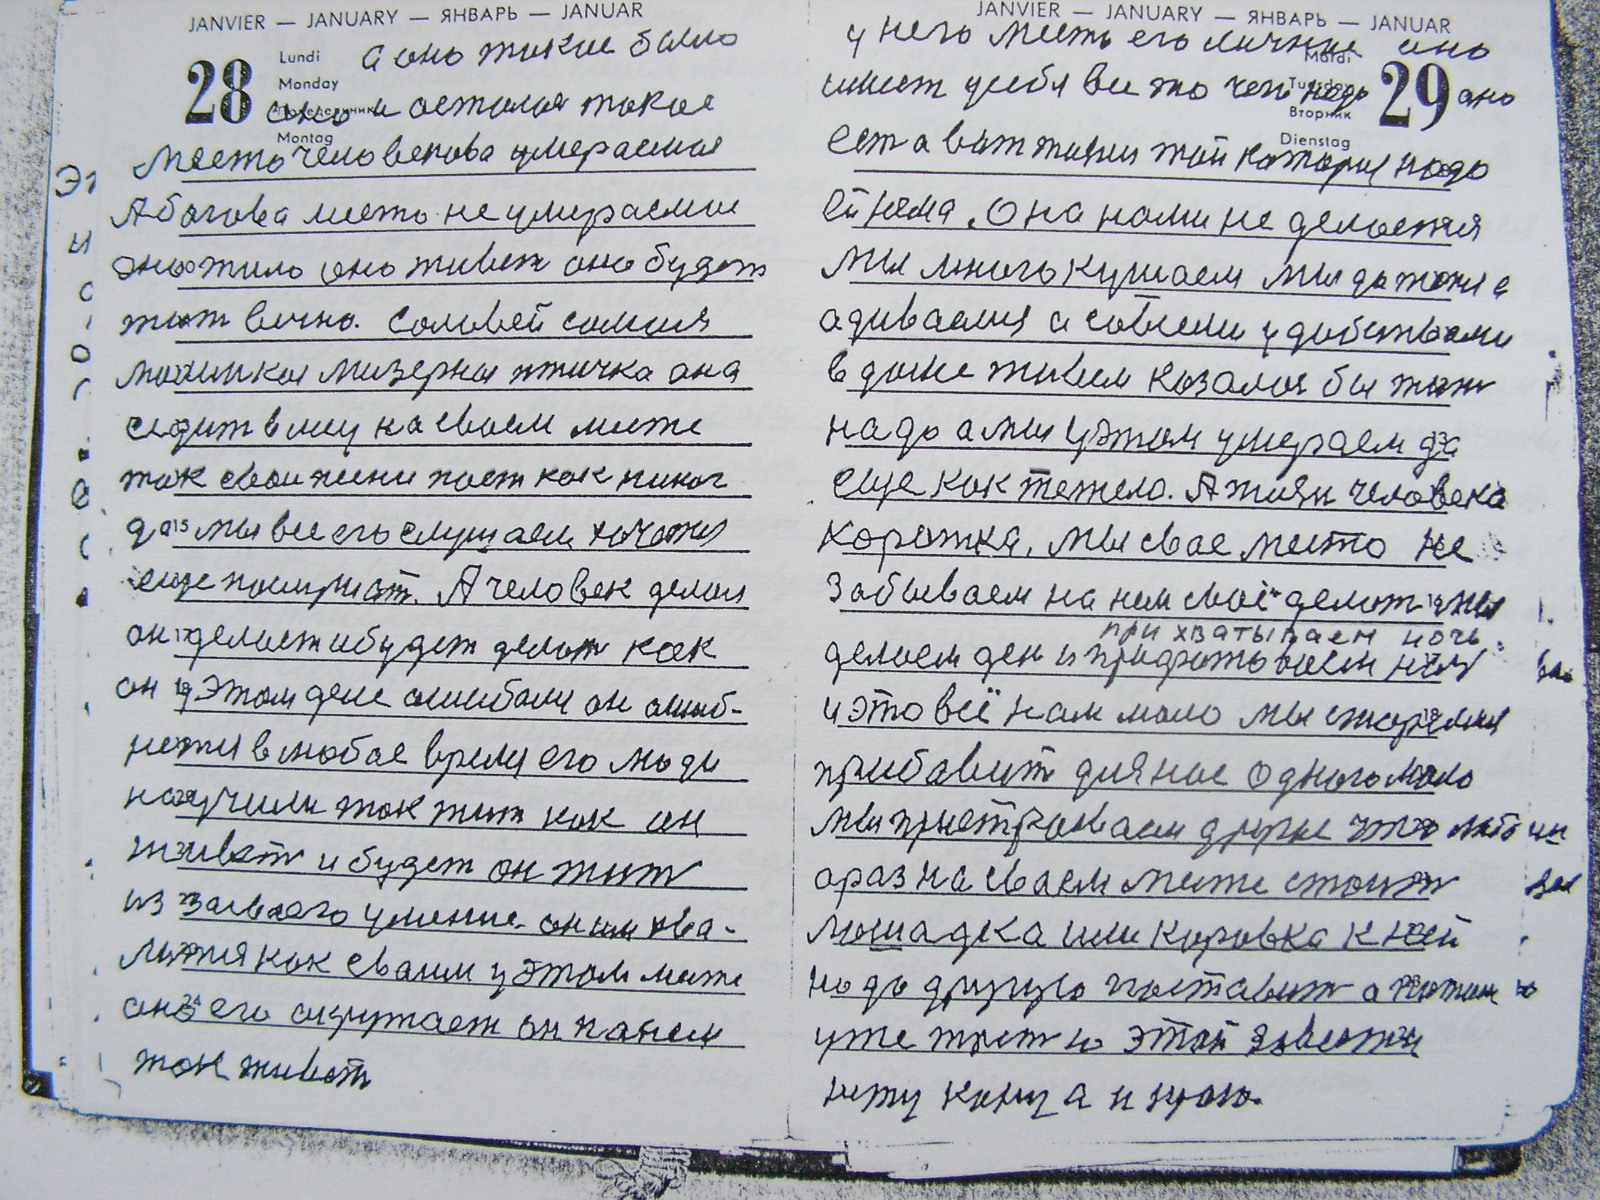 JANVIER — JANUARY — ЯНВАРЬ — JANUAR
28
Lundi
Monday
Понедельник
Montag
а оно такое было
оно и осталося такое
Место человекова умераемае
А богова место не умераемае
оно жило оно живет оно будет
жит вечно. Соловей самая
малинкая мизерная птичка она
седит в лесу на сваем месте
так сваи песни поет как никог
да мы все его слушаем хочется
еще послушат. А человек делал
он делает и будет делат как
он у этом деле ошибался он ошиб-
нется в любое время его люди
научили так жит как он
живет и будет он жит
из за сваего умение он им хва-
лится как сваим у этом месте
оно его окружает он на нем
так живет
JANVIER — JANUARY — ЯНВАРЬ — JANUAR
29
Mardi
Tuesday
Вторник
Dienstag
у него месть его личние оно
имеет у себя все то чего надо оно
ест а вот жизни той которая надо
ей нема. Она нами не делается
Мы много кушаем мы до тепла
адиваемся и совсеми удобствами
в доме живем казалося бы жит
надо а мы у этом умераем да
еще как тежело. А жизн человека
коротка, мы свае место не
забываем на нем своё делат мы
прихватываем ночь
делаем ден и
и это всё нам мало мы стараемся
прибавит для нас одного мало
мы пристраеваем другие что либо ин
араз на сваем месте стоит
лошадка или каровка к ней
надо другую поставит а потом
уже третю этой зависти
нету конца и краю.